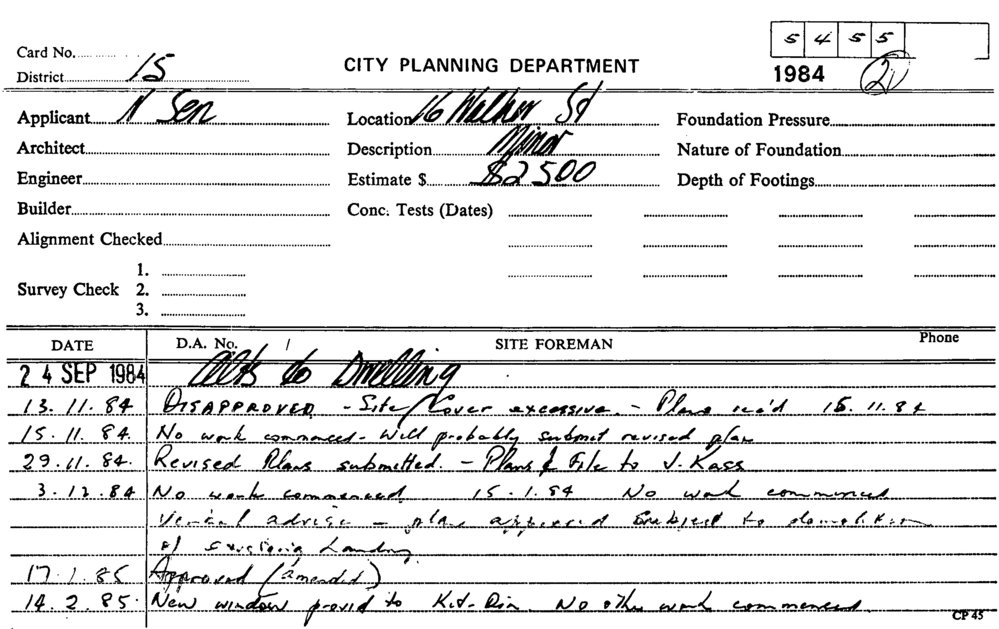 5 4 5 5
Card No.
District 15
CITY PLANNING DEPARTMENT
1984
Applicant N Sen
Location 16 Walker St
Foundation Pressure
Architect
Description Minor
Nature of Foundation
Engineer
Estimate $ $2500
Depth of Footings
Builder
Conc. Tests (Dates)
Alignment Checked
1.
Survey Check 2.
3.
DATE D.A. No. / SITE FOREMAN Phone
24 SEP 1984 Alts to Dwelling
13.11.84 DISAPPROVED - Site/Cover excessive. - Plans rec'd 15.11.84
15.11.84. No work commenced - Will probably submit revised plan
29.11.84. Revised Plans submitted. - Plans & File to J. Kass
3.12.84 No work commenced 15.1.84 No work commenced
Verbal advise - plan approved subject to demolition
of existing Laundry
17.1.85 Approved (amended)
14.2.85. New window provid to Kit-Din. No other work commenced.
CP 45